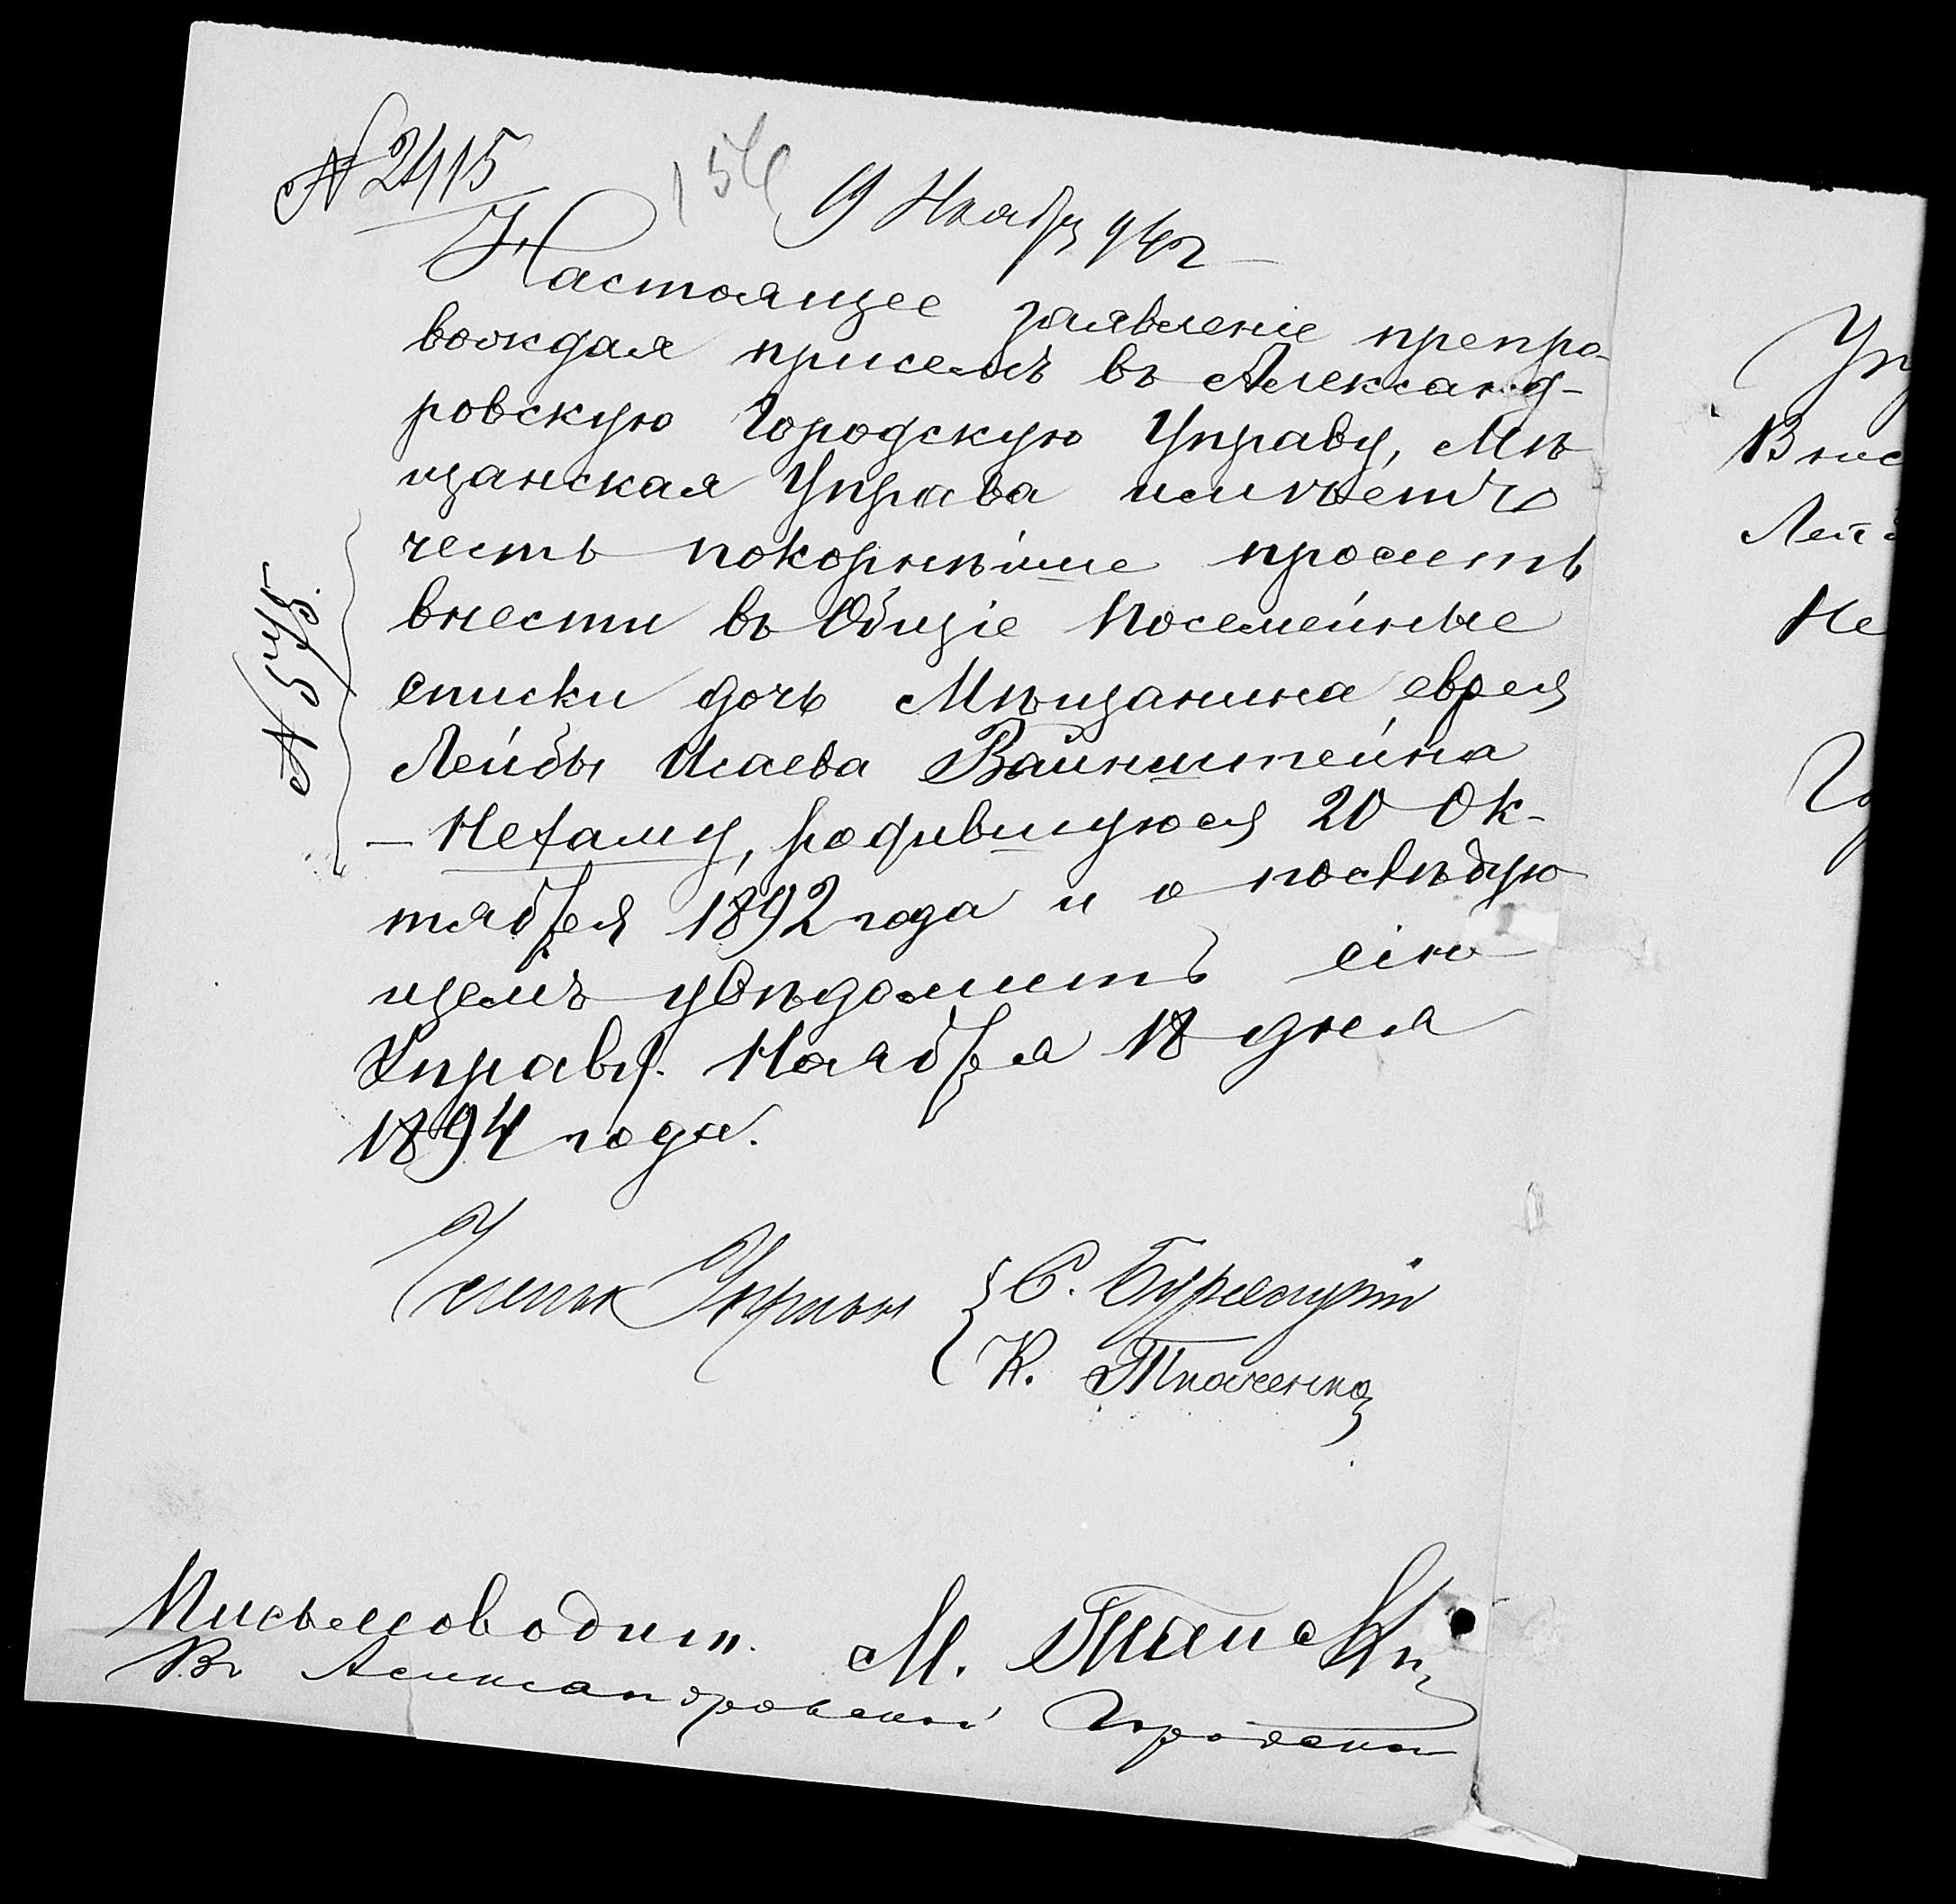 № 2415
154
19 Ноября 94 г
Настоящее заявленіе препро-
вождая присемъ въ Александ-
ровскую Городскую Управу, Мѣ
щанская Управа имѣетъ
честь покорнѣйше просить
внести въ Общіе Посемейные
списки дочь Мѣщанина еврея
Лейбы Исаева Вайнштейна
— Нехаму, родившуюся 20 Ок-
тября 1892 года и о послѣдую
щемъ увѣдомить сію
Управу. Ноября 18 дня
1894 года.
№ 545.
Члены Управы
С.
К. Ткаченко
Письмоводит. М.
Въ Александровской Городской
Уп
Внес
Лей
Не